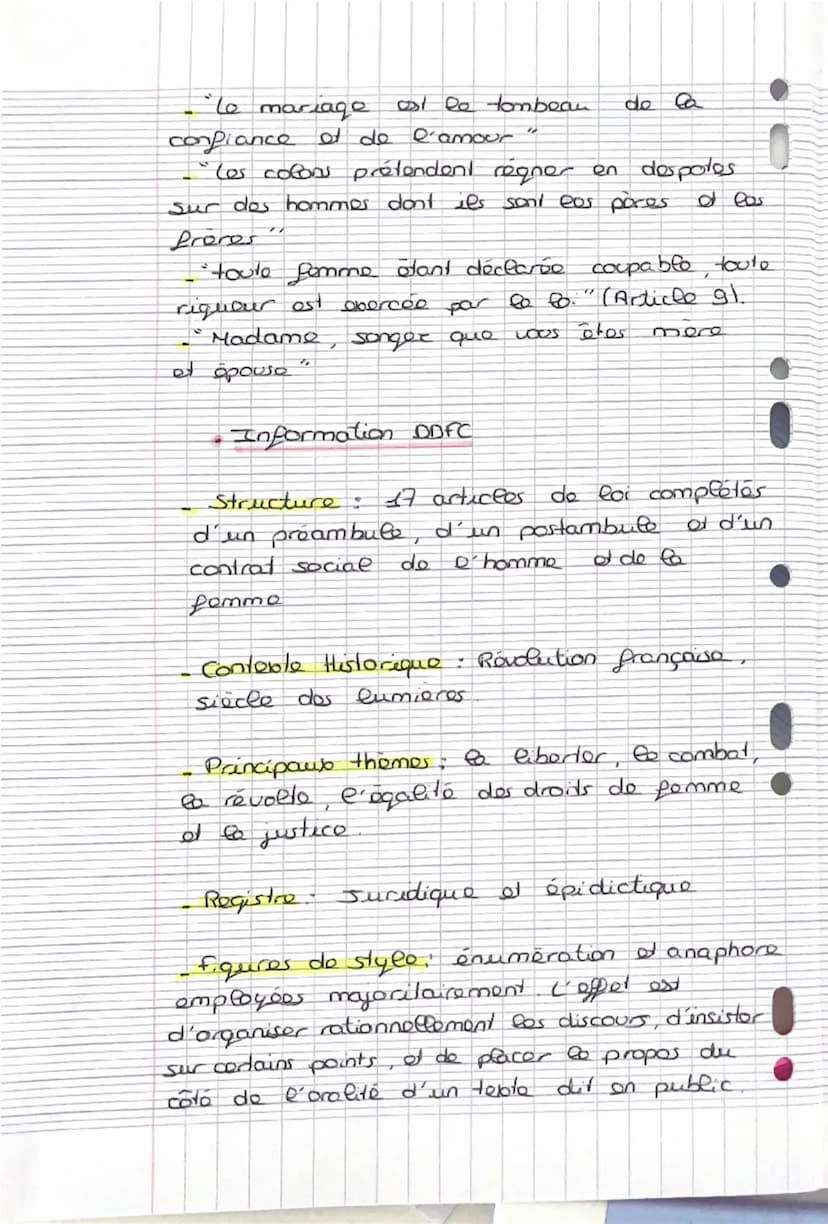 - "Le mariage est le tombeau de la
confiance et de l'amour"
- "Les colons prétendent régner en despotes
sur des hommes dont ils sont les pères et les
frères"
- "toute femme étant déclarée coupable, toute
rigueur est exercée par la loi." (Article 9).
- "Madame, songez que vous êtes mère
et épouse"
• Information DDFC
- Structure : 17 articles de loi complétés
d'un préambule, d'un postambule et d'un
contrat social de l'homme et de la
femme
- Contexte Historique : Révolution française,
siècle des lumieres.
- Principaux thèmes : la liberter, le combat,
la révolte, l'égalité des droits de femme
et la justice.
- Registre : Juridique et épidictique
- figures de style : énumération et anaphore
employées majoritairement. L'effet est
d'organiser rationnellement les discours, d'insister
sur certains points, et de placer le propos du
côté de l'oralité d'un texte dit en public.